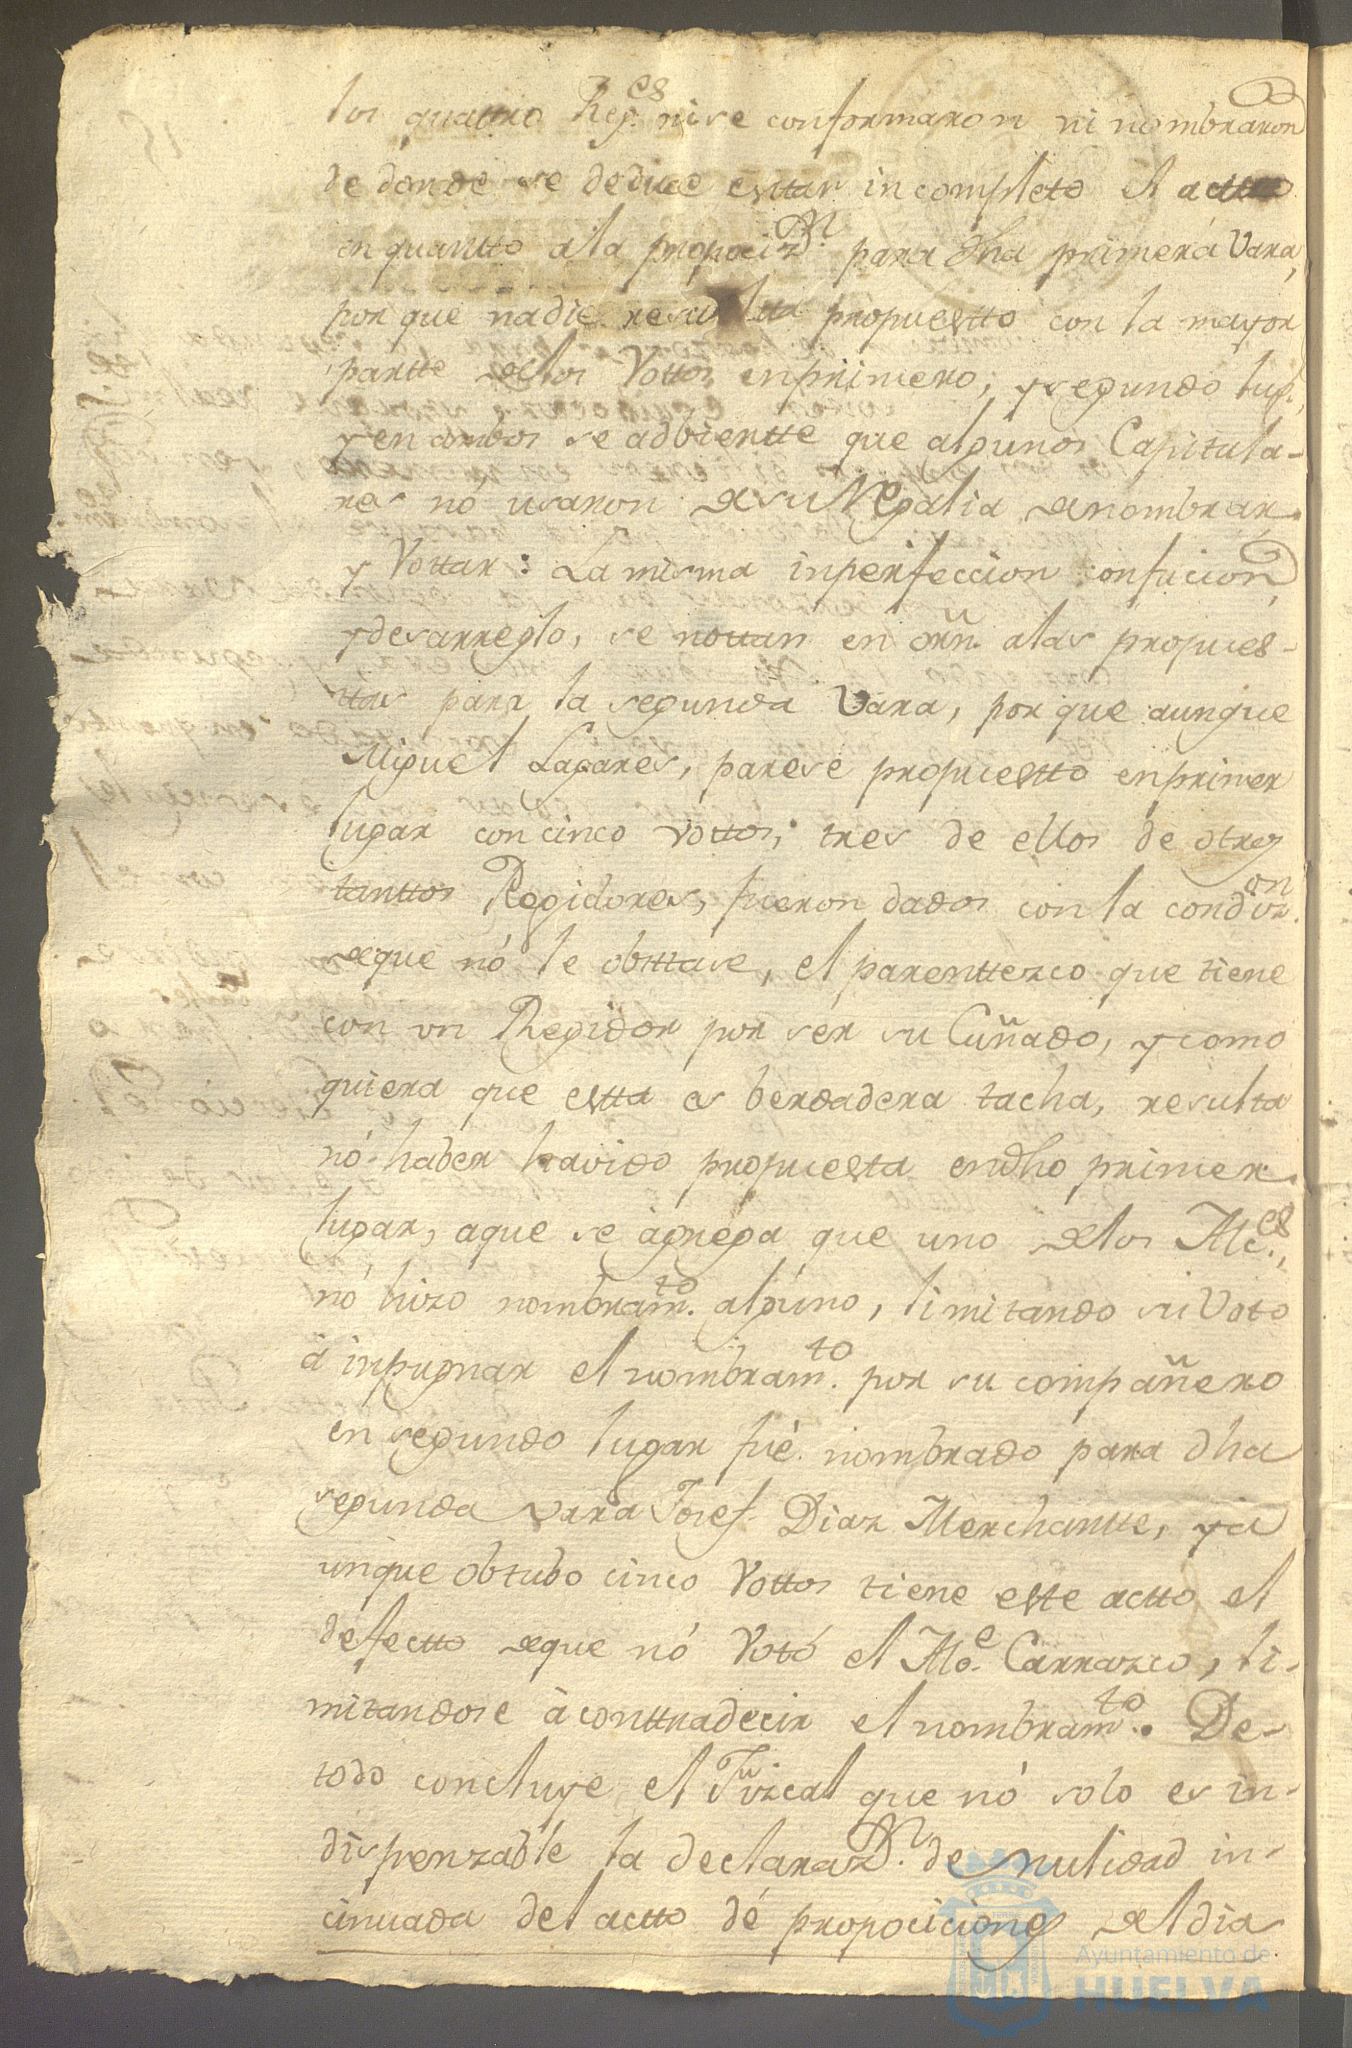 los quattro Reg.es ni se conformaron ni nombraron
de donde se deduce esttar incompleto el actto
en quantto a la propociz.on para dha primera Vara,
por que nadie resultta propuestto con la mayor
partte de los Vottos en primero, y segundo lug.r,
y en ambos se adbiertte que algunos Capitula-
res nó usaron de su Regalia de nombrar
y Vottar: La misma inperfeccion confucion,
y desarreglo, se nottan en orn. a las propues-
ttas para la segunda Vara, por que aunque
Miguel Lagares, parese propuestto en primer
lugar con cinco vottos, tres de ellos de otros
tanttos Regidores, fueron dados con la condiz.on
de que nó le obsttase, el parenttezco que tiene
con un Regidor por ser su Cuñado, y como
quiera que estta es berdadera tacha, resulta
nó haber havido propuesta en dho primer
lugar, a que se agrega que uno de los Alc.es,
nó hizo nombram.to alguno, limitando su Voto
à inpugnar el nombram.to por su compañero
en segundo lugar fuè nombrado para dha
segunda vara Josef Diaz Merchantte, y a
unque obtubo cinco Vottos tiene este actto el
defectto de que nó Votó el Alc.e Carrazco, li-
mitandose à conttradecir el nombram.to. De
todo concluye el Fizcal que nó solo es in-
dispenzable la declaraz.on de nulidad in-
cinuada del actto dé propociciones del dia
Ayuntamiento de
HUELVA